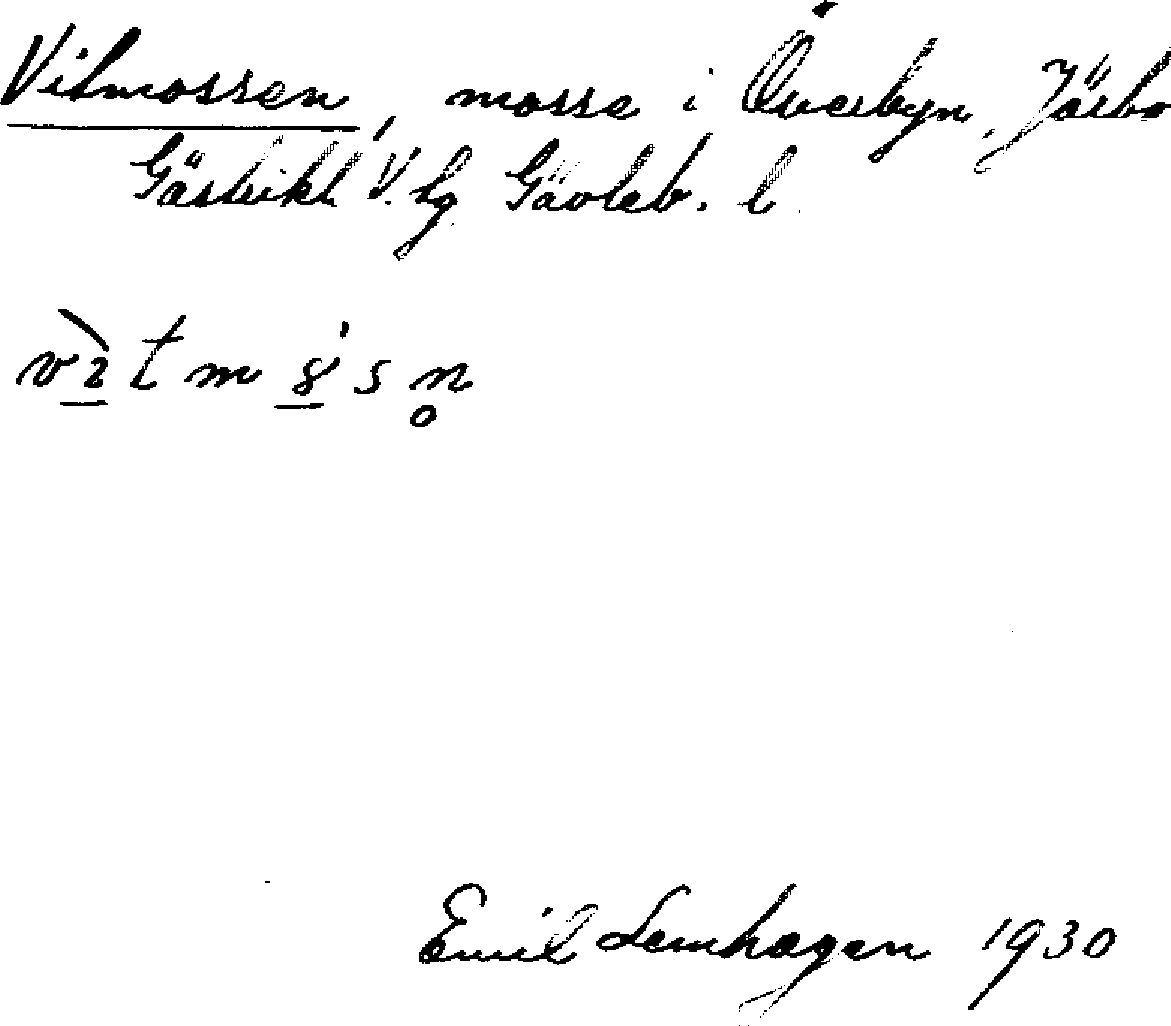 Vitmossen, mosse i Överbyn, Järbo
Gästrikl. V. hg Gävleb. l.
vìtms̀sn̥
Emil Lemhagen 1930